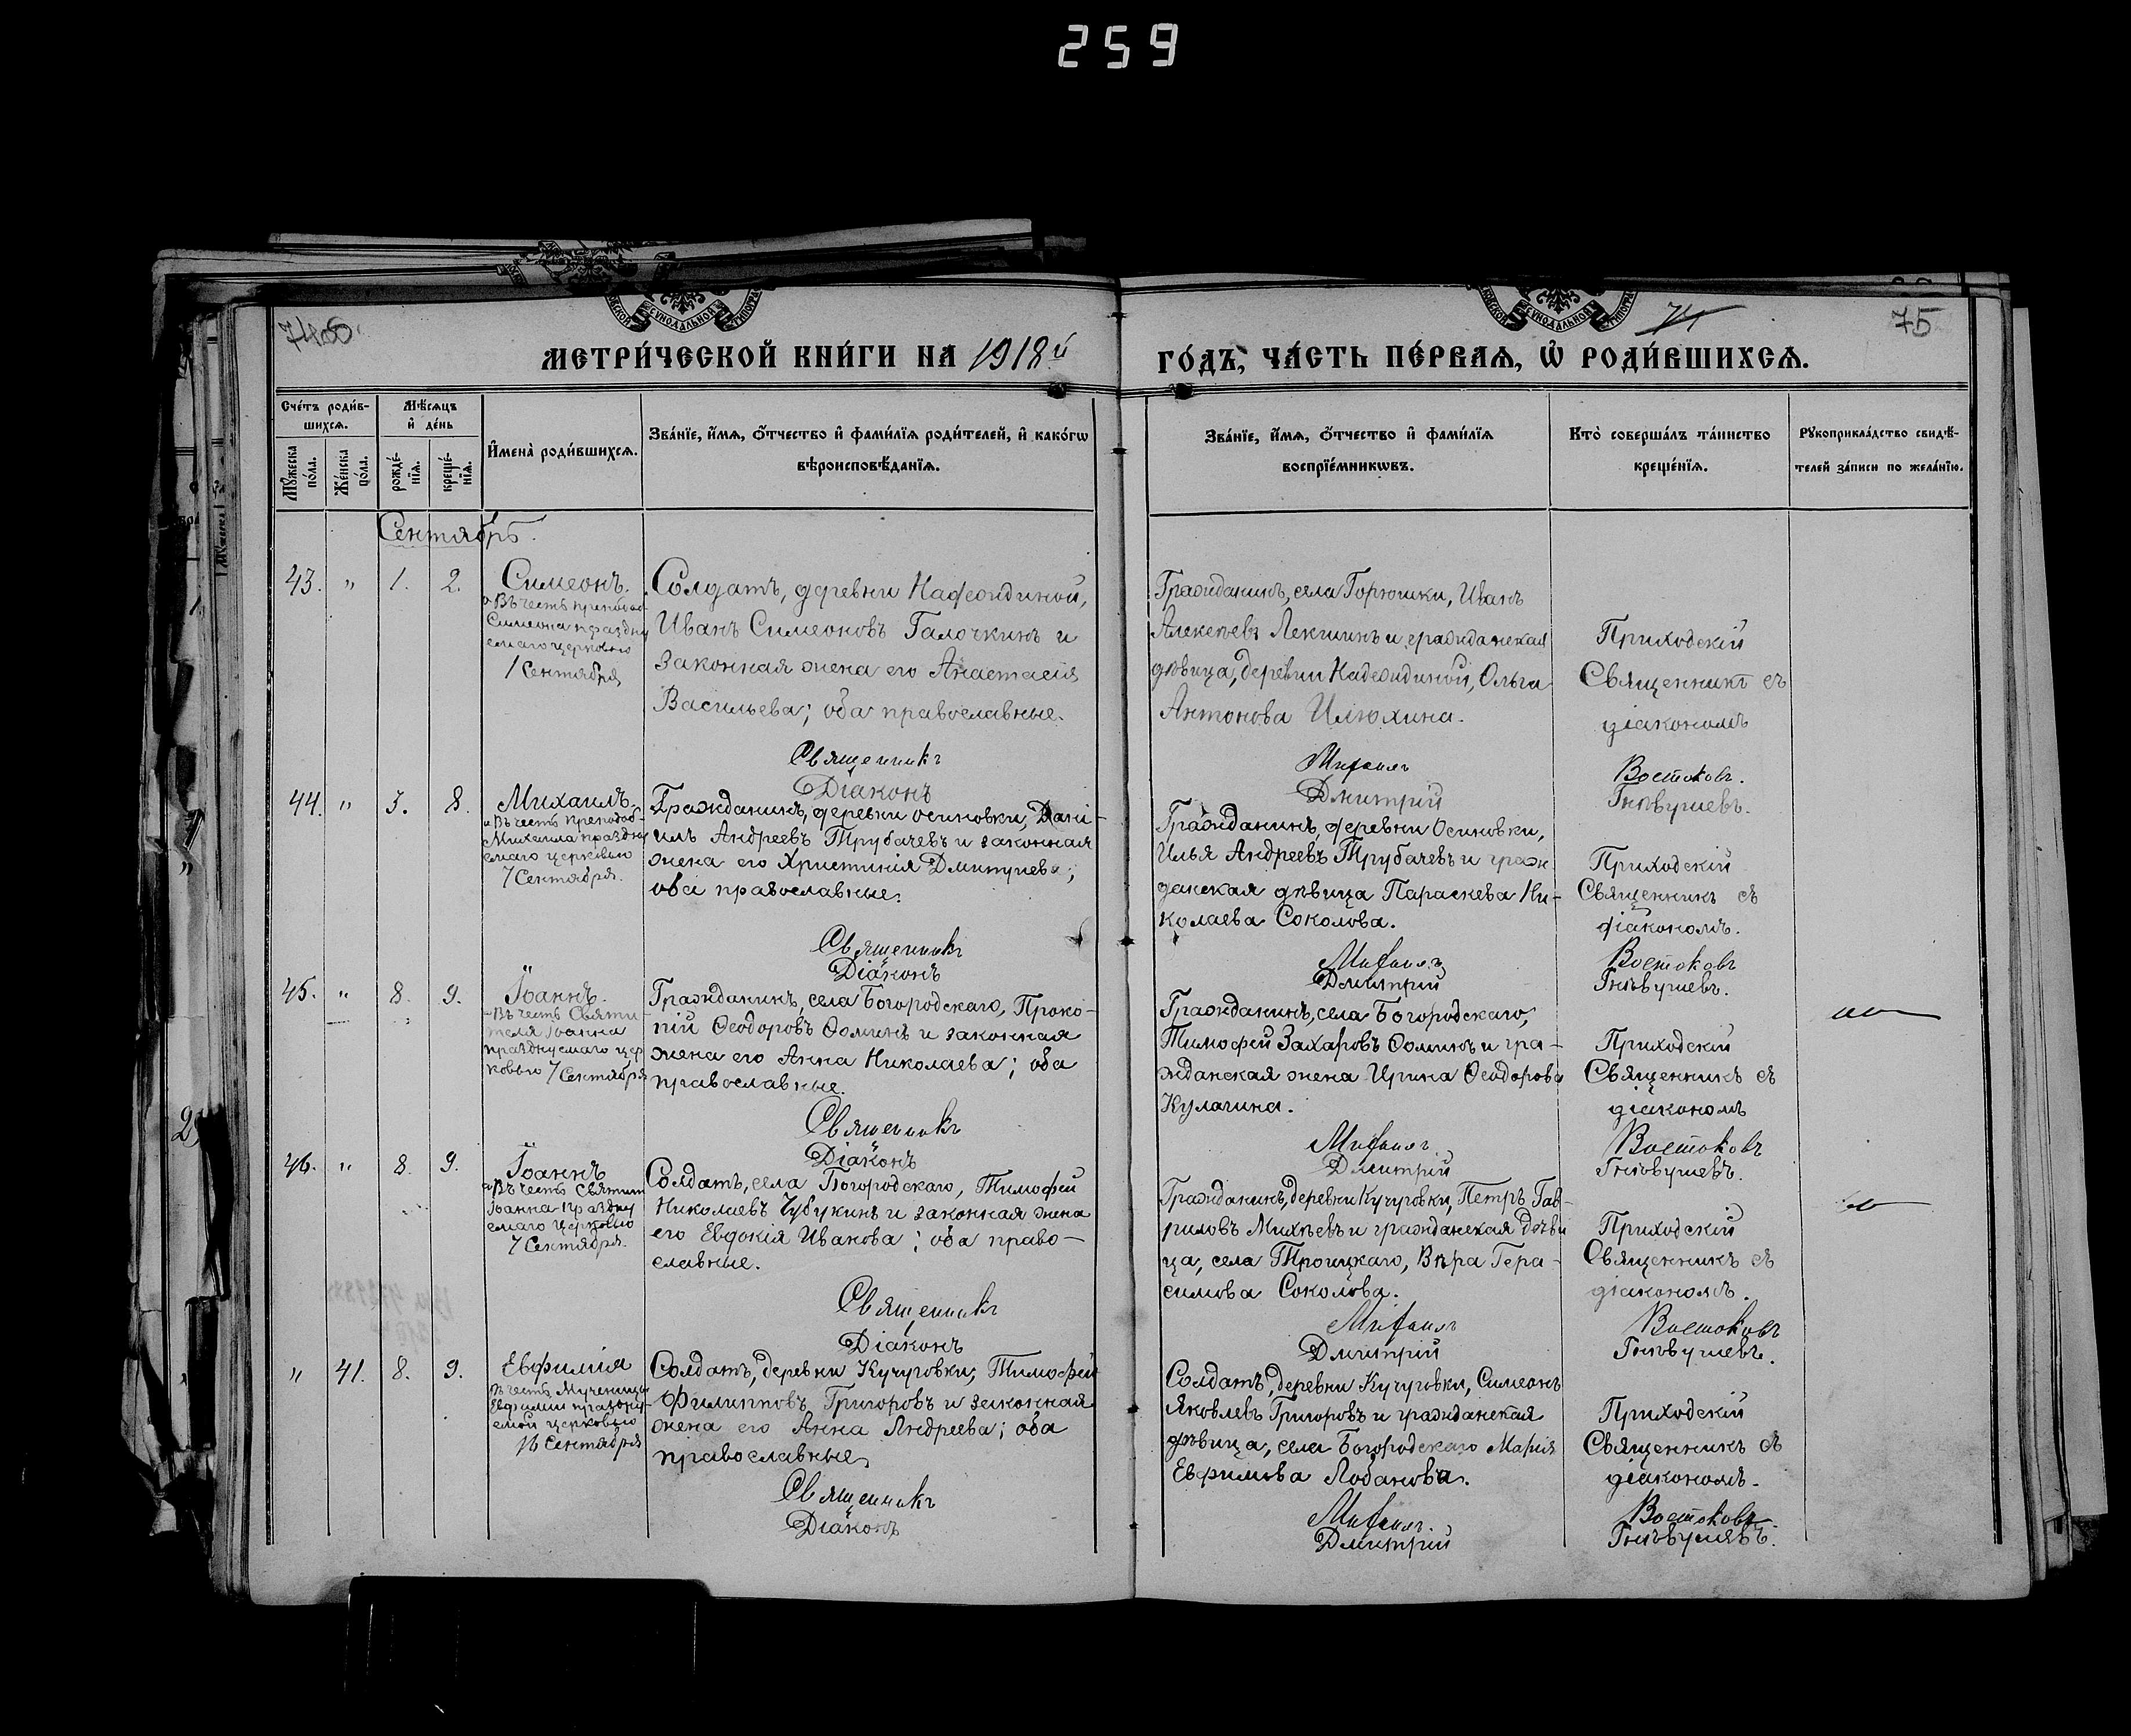 259
75
МЕТРИ́ЧЕСКОЙ КНИ́ГИ НА 1918й
ГО́ДЪ, ЧА́СТЬ ПЕ́РВАѦ, Ѡ҆ РОДИ́ВШИХСѦ.
Сче́тъ роди́в-
шихсѧ.
Мꙋ́жеска по́ла.
Же́нска по́ла.
Мѣ́сѧцъ
и҆ де́нь
рожде́-нїѧ.
креще́-нїѧ.
И҆мена̀ роди́вшихсѧ.
Зва́нїе, и҆́мѧ, ѻ҆́тчество и҆ фами́лїѧ роди́телей, и҆ како́гѡ
вѣроисповѣ́данїѧ.
Зва́нїе, и҆́мѧ, ѻ҆́тчество и҆ фами́лїѧ
воспрїе́мникѡвъ.
Кто̀ соверша́лъ та́инство
креще́нїѧ.
Рꙋкоприкла́дство свидѣ́-
телей за́писи по жела́нїю.
Сентябрь.
43. " 1. 2.
Симеонъ.
Въ честь преподоб-
Симеона праздну
емаго церковью
1 Сентября
Солдатъ, деревни Надеждиной,
Иванъ Симеоновъ Галочкинъ и
законная жена его Анастасія
Васильева; оба православные.
Гражданинъ, села Горюшки, Иванъ
Алексеевъ Лекшинъ и гражданская
дѣвица, деревни Надеждиной, Ольга
Антонова Илюхина.
Приходскій
Священникъ съ
діакономъ
Священникъ Михаилъ Востоковъ.
Діаконъ Дмитрій Гнѣвушевъ.
44. " 3. 8.
Михаилъ.
Въ честь преподоб-
Михаила праздну
емаго церковью
7 Сентября.
Гражданинъ, деревни Осиновки, Дані-
илъ Андреевъ Трубачевъ и законная
жена его Христинія Дмитриева;
оба православные.
Гражданинъ, деревни Осиновки,
Илья Андреевъ Трубачевъ и граж
данская дѣвица Параскева Ни-
колаева Соколова.
Приходскій
Священникъ съ
діакономъ.
Священникъ Михаилъ Востоковъ
Діаконъ Дмитрій Гнѣвушевъ.
45. " 8. 9.
Іоаннъ.
Въ честь Святи
теля Іоанна
празднуемаго цер
ковью 7 Сентября
Гражданинъ, села Богородскаго, Проко-
пій Ѳеодоровъ Ѳоминъ и законная
жена его Анна Николаева; оба
православные.
Гражданинъ, села Богородскаго,
Тимофей Захаровъ Ѳоминъ и гра-
жданская жена Ирина Ѳеодорова
Кулагина.
Приходскій
Священникъ съ
діакономъ
Священникъ Михаилъ Востоковъ
Діаконъ Дмитрій Гнѣвушевъ.
46. " 8. 9.
Іоаннъ
Въ честь Святит
Іоанна праздну
емаго церковью
7 Сентября.
Солдатъ, села Богородскаго, Тимофей
Николаевъ Чубукинъ и законная жена
его Евдокія Иванова; оба право-
славные.
Гражданинъ, деревни Кучуровки, Петръ Гав-
риловъ Михѣевъ и гражданская дѣви
ца, села Троицкаго, Вѣра Гера-
симова Соколова.
Приходскій
Священникъ съ
діакономъ.
Священникъ Михаилъ Востоковъ
Діаконъ Дмитрій Гнѣвушевъ.
" 41. 8. 9.
Евфимія
въ честь Мученицы
Евфиміи праздну-
емой церковью
16 Сентября
Солдатъ, деревни Кучуровки, Тимофей
Филипповъ Григоровъ и законная
жена его Анна Андреева; оба
православные
Солдатъ, деревни Кучуровки, Симеонъ
Яковлевъ Григоровъ и гражданская
дѣвица, села Богородскаго Марія
Евфимова Лобанова.
Приходскій
Священникъ съ
діакономъ.
Священникъ Михаилъ Востоковъ
Діаконъ Дмитрій Гнѣвушевъ.